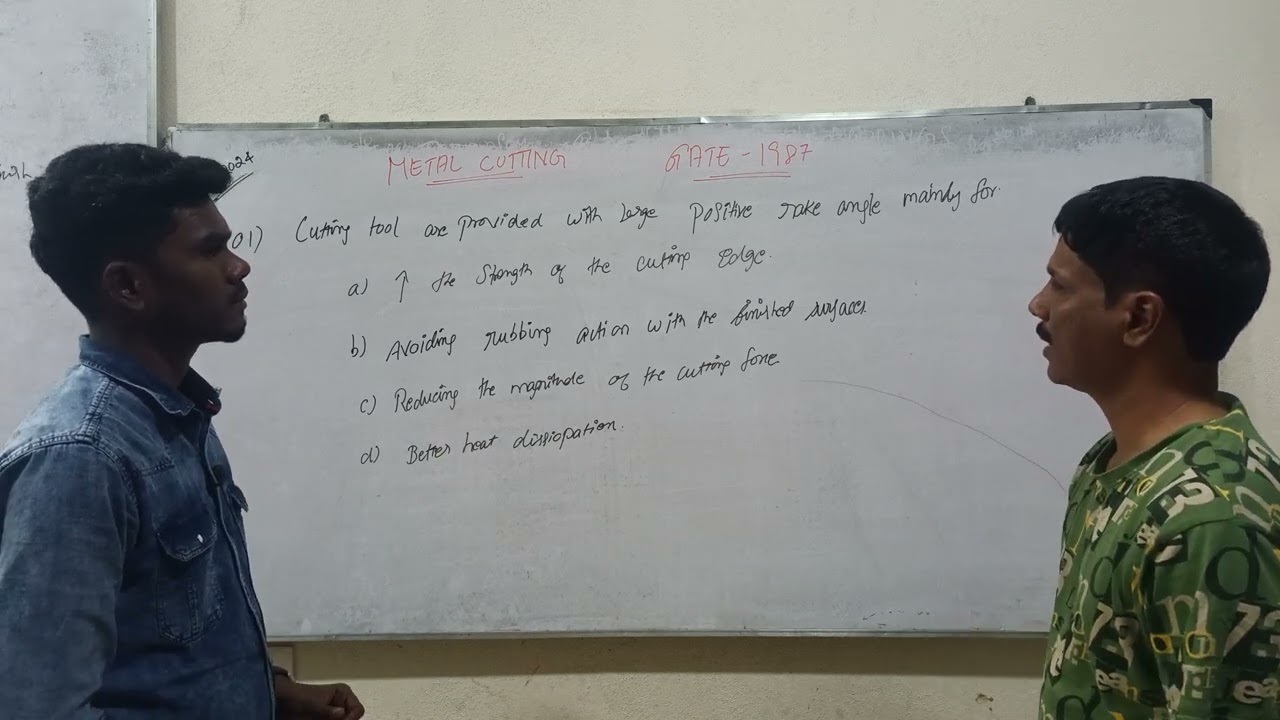 2024
METAL CUTTING GATE - 1987
01) Cutting tool are provided with large positive rake angle mainly for.
a) ↑ the strength of the cutting edge.
b) Avoiding rubbing action with the finished surfaces
c) Reducing the magnitude of the cutting force
d) Better heat dissipation.